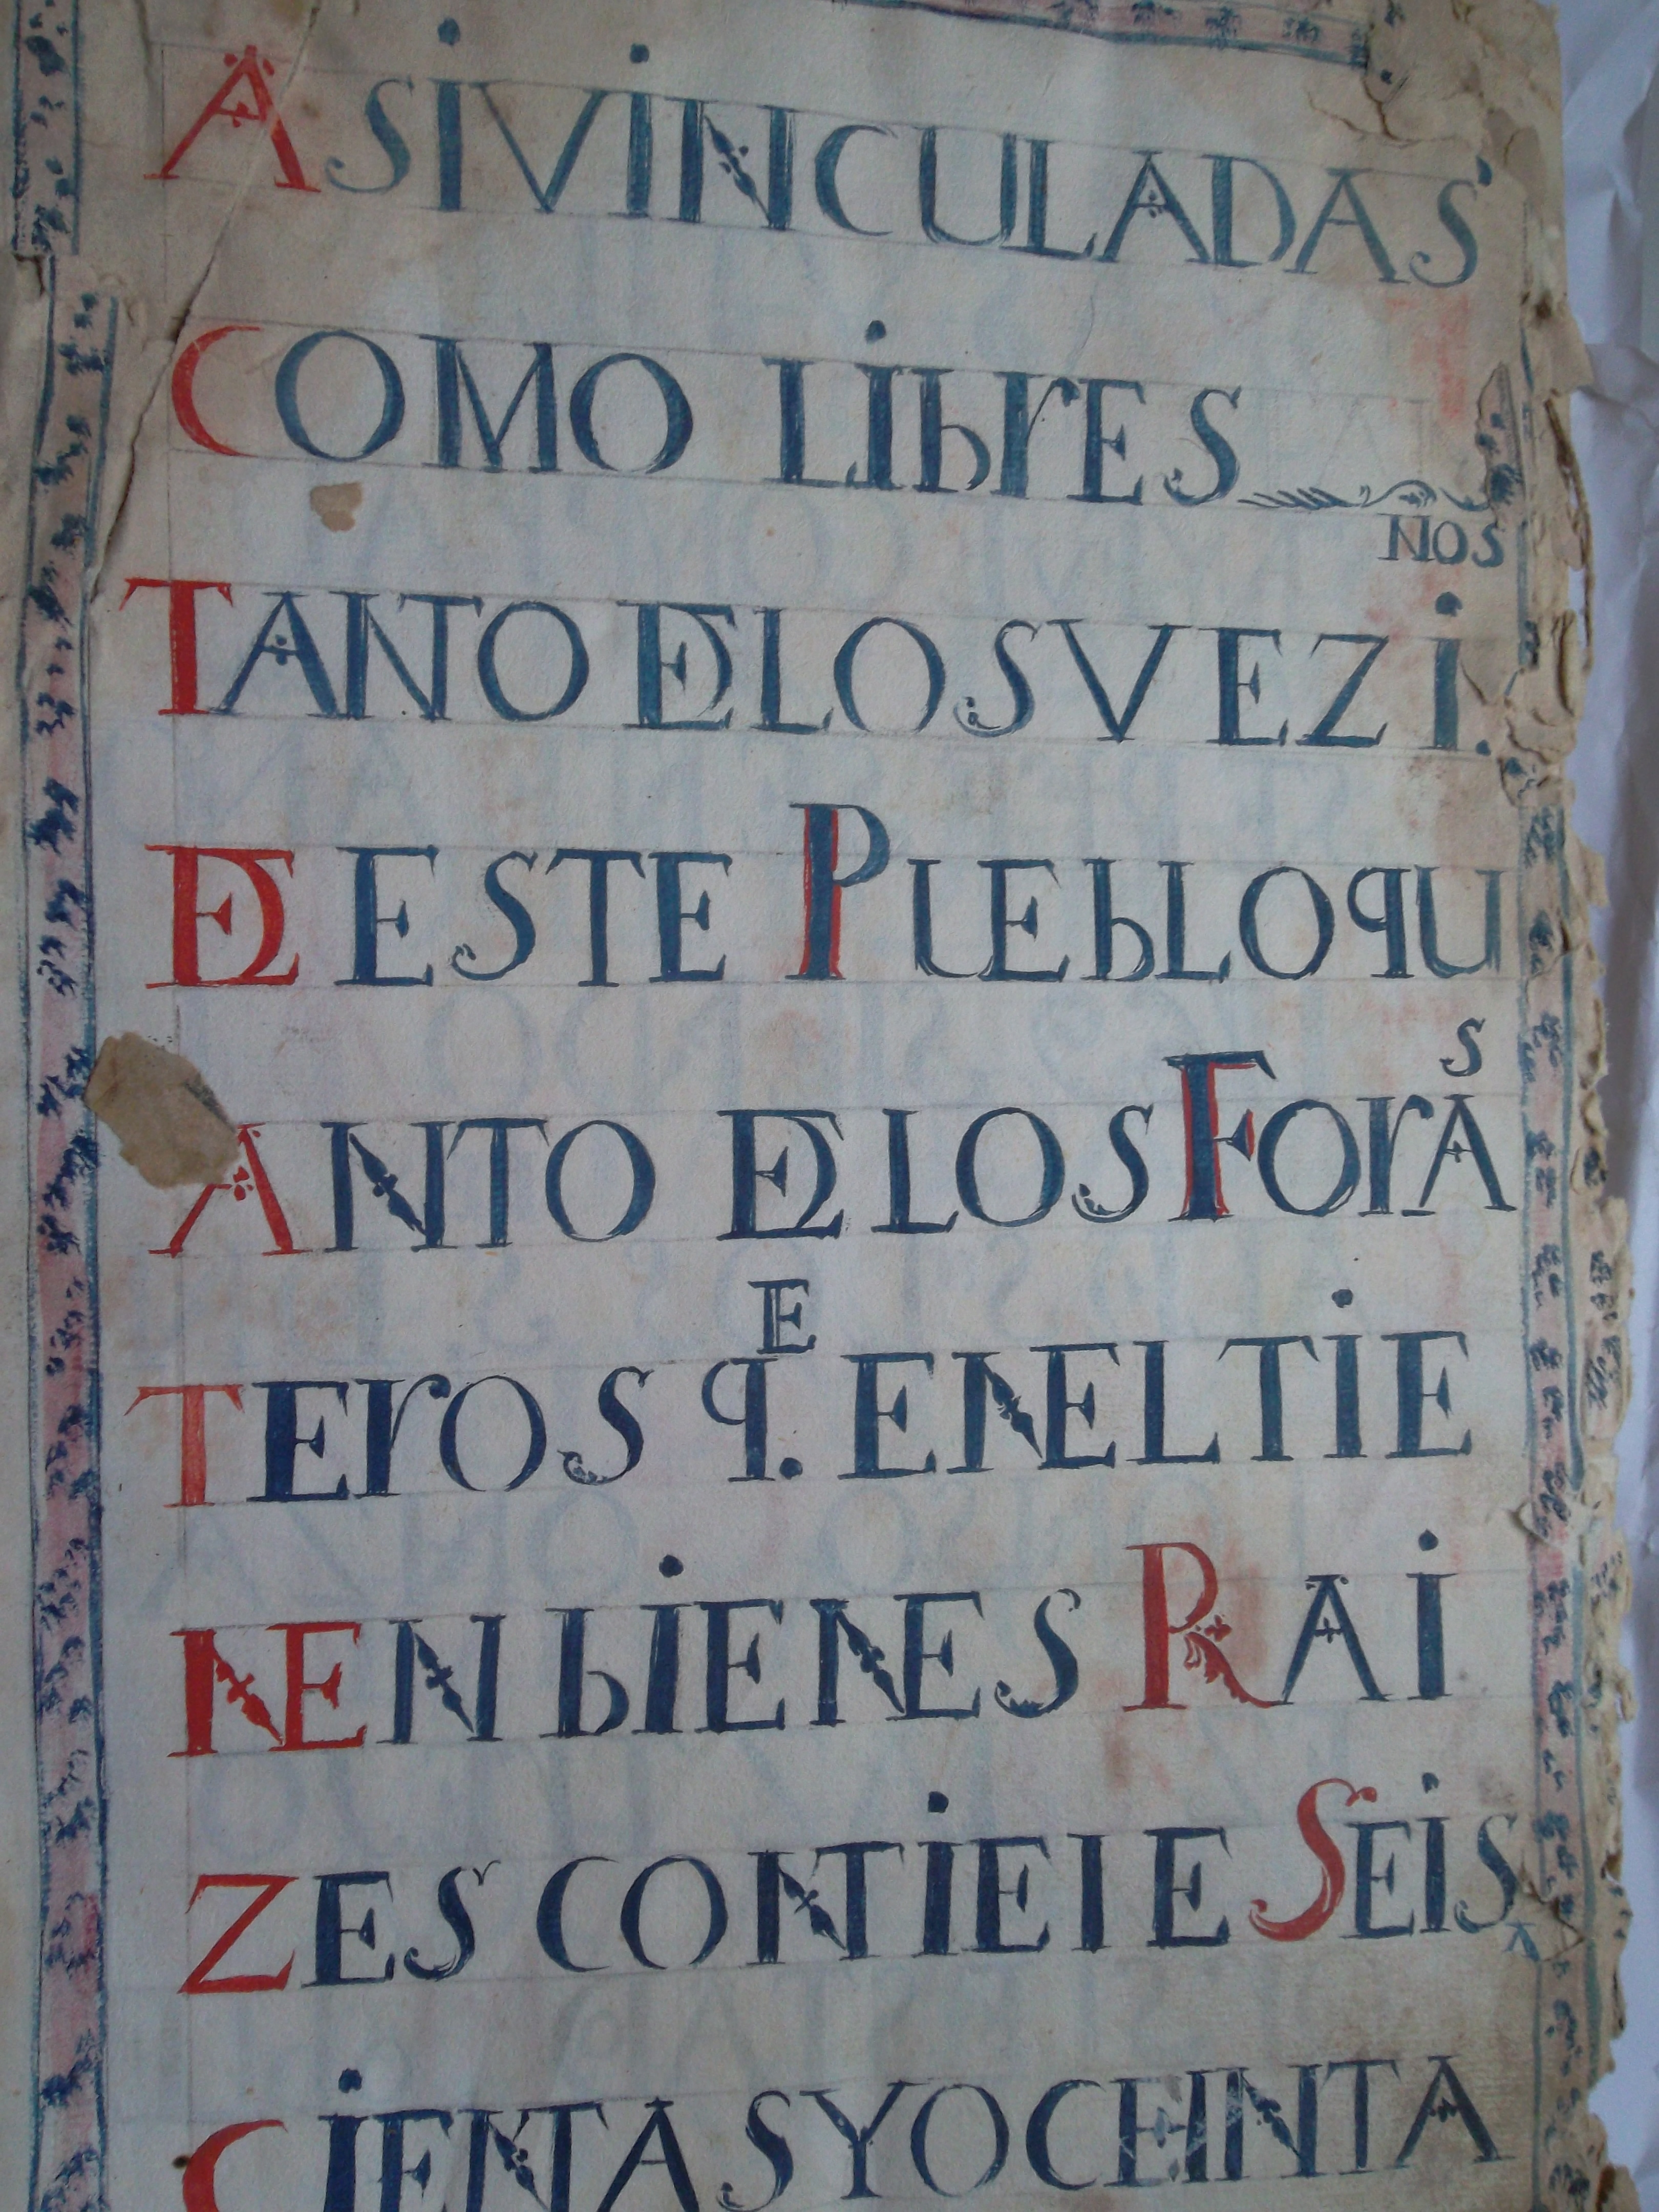 ASI VINCULADAS
COMO LIbrES
NOS
TANTO DE LOS VEZI.
DE ESTE PUEbLO QU
S
ANTO DE LOS FOrA
E
TErOS q. EN EL TIE
NEN bIENES RAI
ZES CONTIEIE SEIS
CIENTAS Y OCHINTA